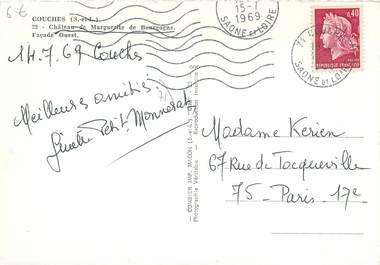 6€
COUCHES (S.-et-L.)
22 - Château de Marguerite de Bourgogne.
Façade Ouest.
14.7.69 Couches
Meilleures amitiés.
Ginette Petit-Monnerat
15-7
1969
SAONE ET LOIRE
71 COUCHES
SAONE ET LOIRE
0,40
REPUBLIQUE FRANCAISE
COMBIER IMP. MACON (S.-et-L.)
Photographie Véritable - Reproduction
Madame Kerien
67 Rue de Tocqueville
75 - Paris. 17e